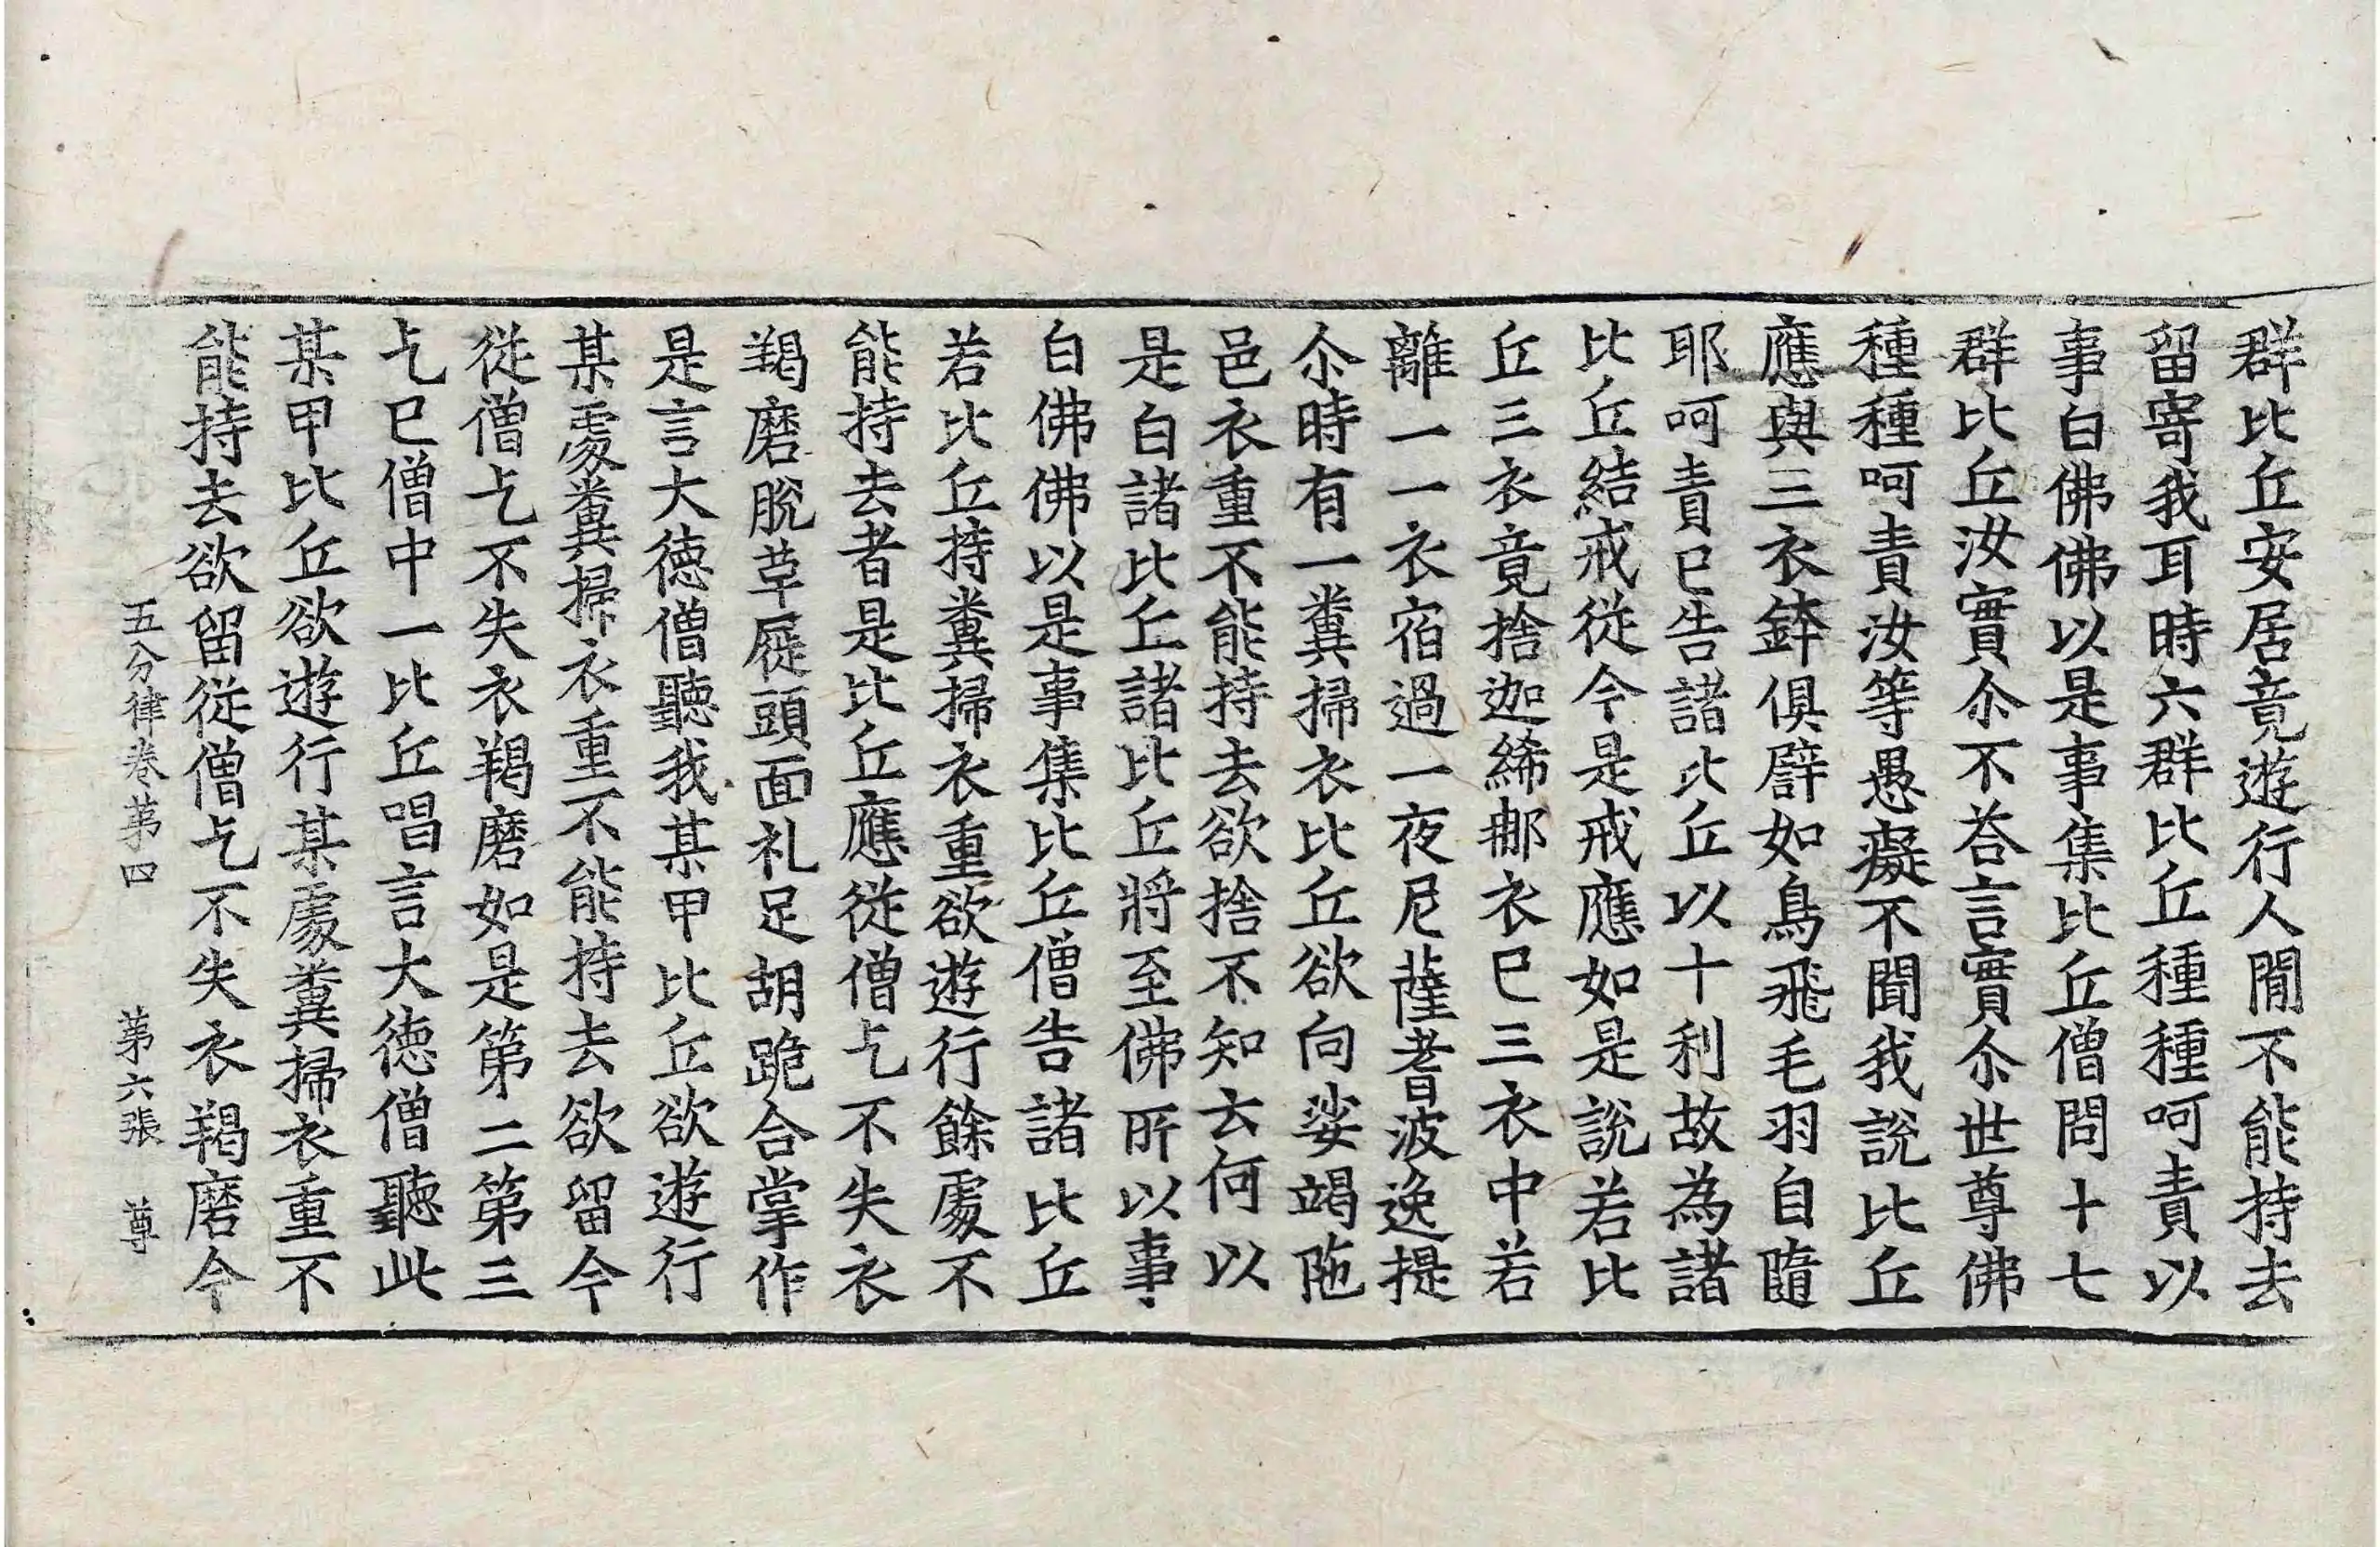 群比丘安居竟遊行人間不能持去
留寄我耳時六群比丘種種呵責以
事白佛佛以是事集比丘僧問十七
群比丘汝實尒不荅言實尒世尊佛
種種呵責汝等愚癡不聞我說比丘
應與三衣鉢俱譬如鳥飛毛羽自隨
耶呵責已告諸比丘以十利故為諸
比丘結戒從今是戒應如是說若比
丘三衣竟捨迦絺那衣已三衣中若
離一一衣宿過一夜尼薩耆波逸提
尒時有一糞掃衣比丘欲向娑竭陁
邑衣重不能持去欲捨不知云何以
是白諸比丘諸比丘將至佛所以事
白佛佛以是事集比丘僧告諸比丘
若比丘持糞掃衣重欲遊行餘處不
能持去者是比丘應從僧乞不失衣
羯磨脫草屣頭面礼足胡跪合掌作
是言大徳僧聽我某甲比丘欲遊行
某處糞掃衣重不能持去欲留今
從僧乞不失衣羯磨如是第二第三
乞已僧中一比丘唱言大徳僧聽此
某甲比丘欲遊行某處糞掃衣重不
能持去欲留從僧乞不失衣羯磨今
五分律卷苐四 苐六張 尊